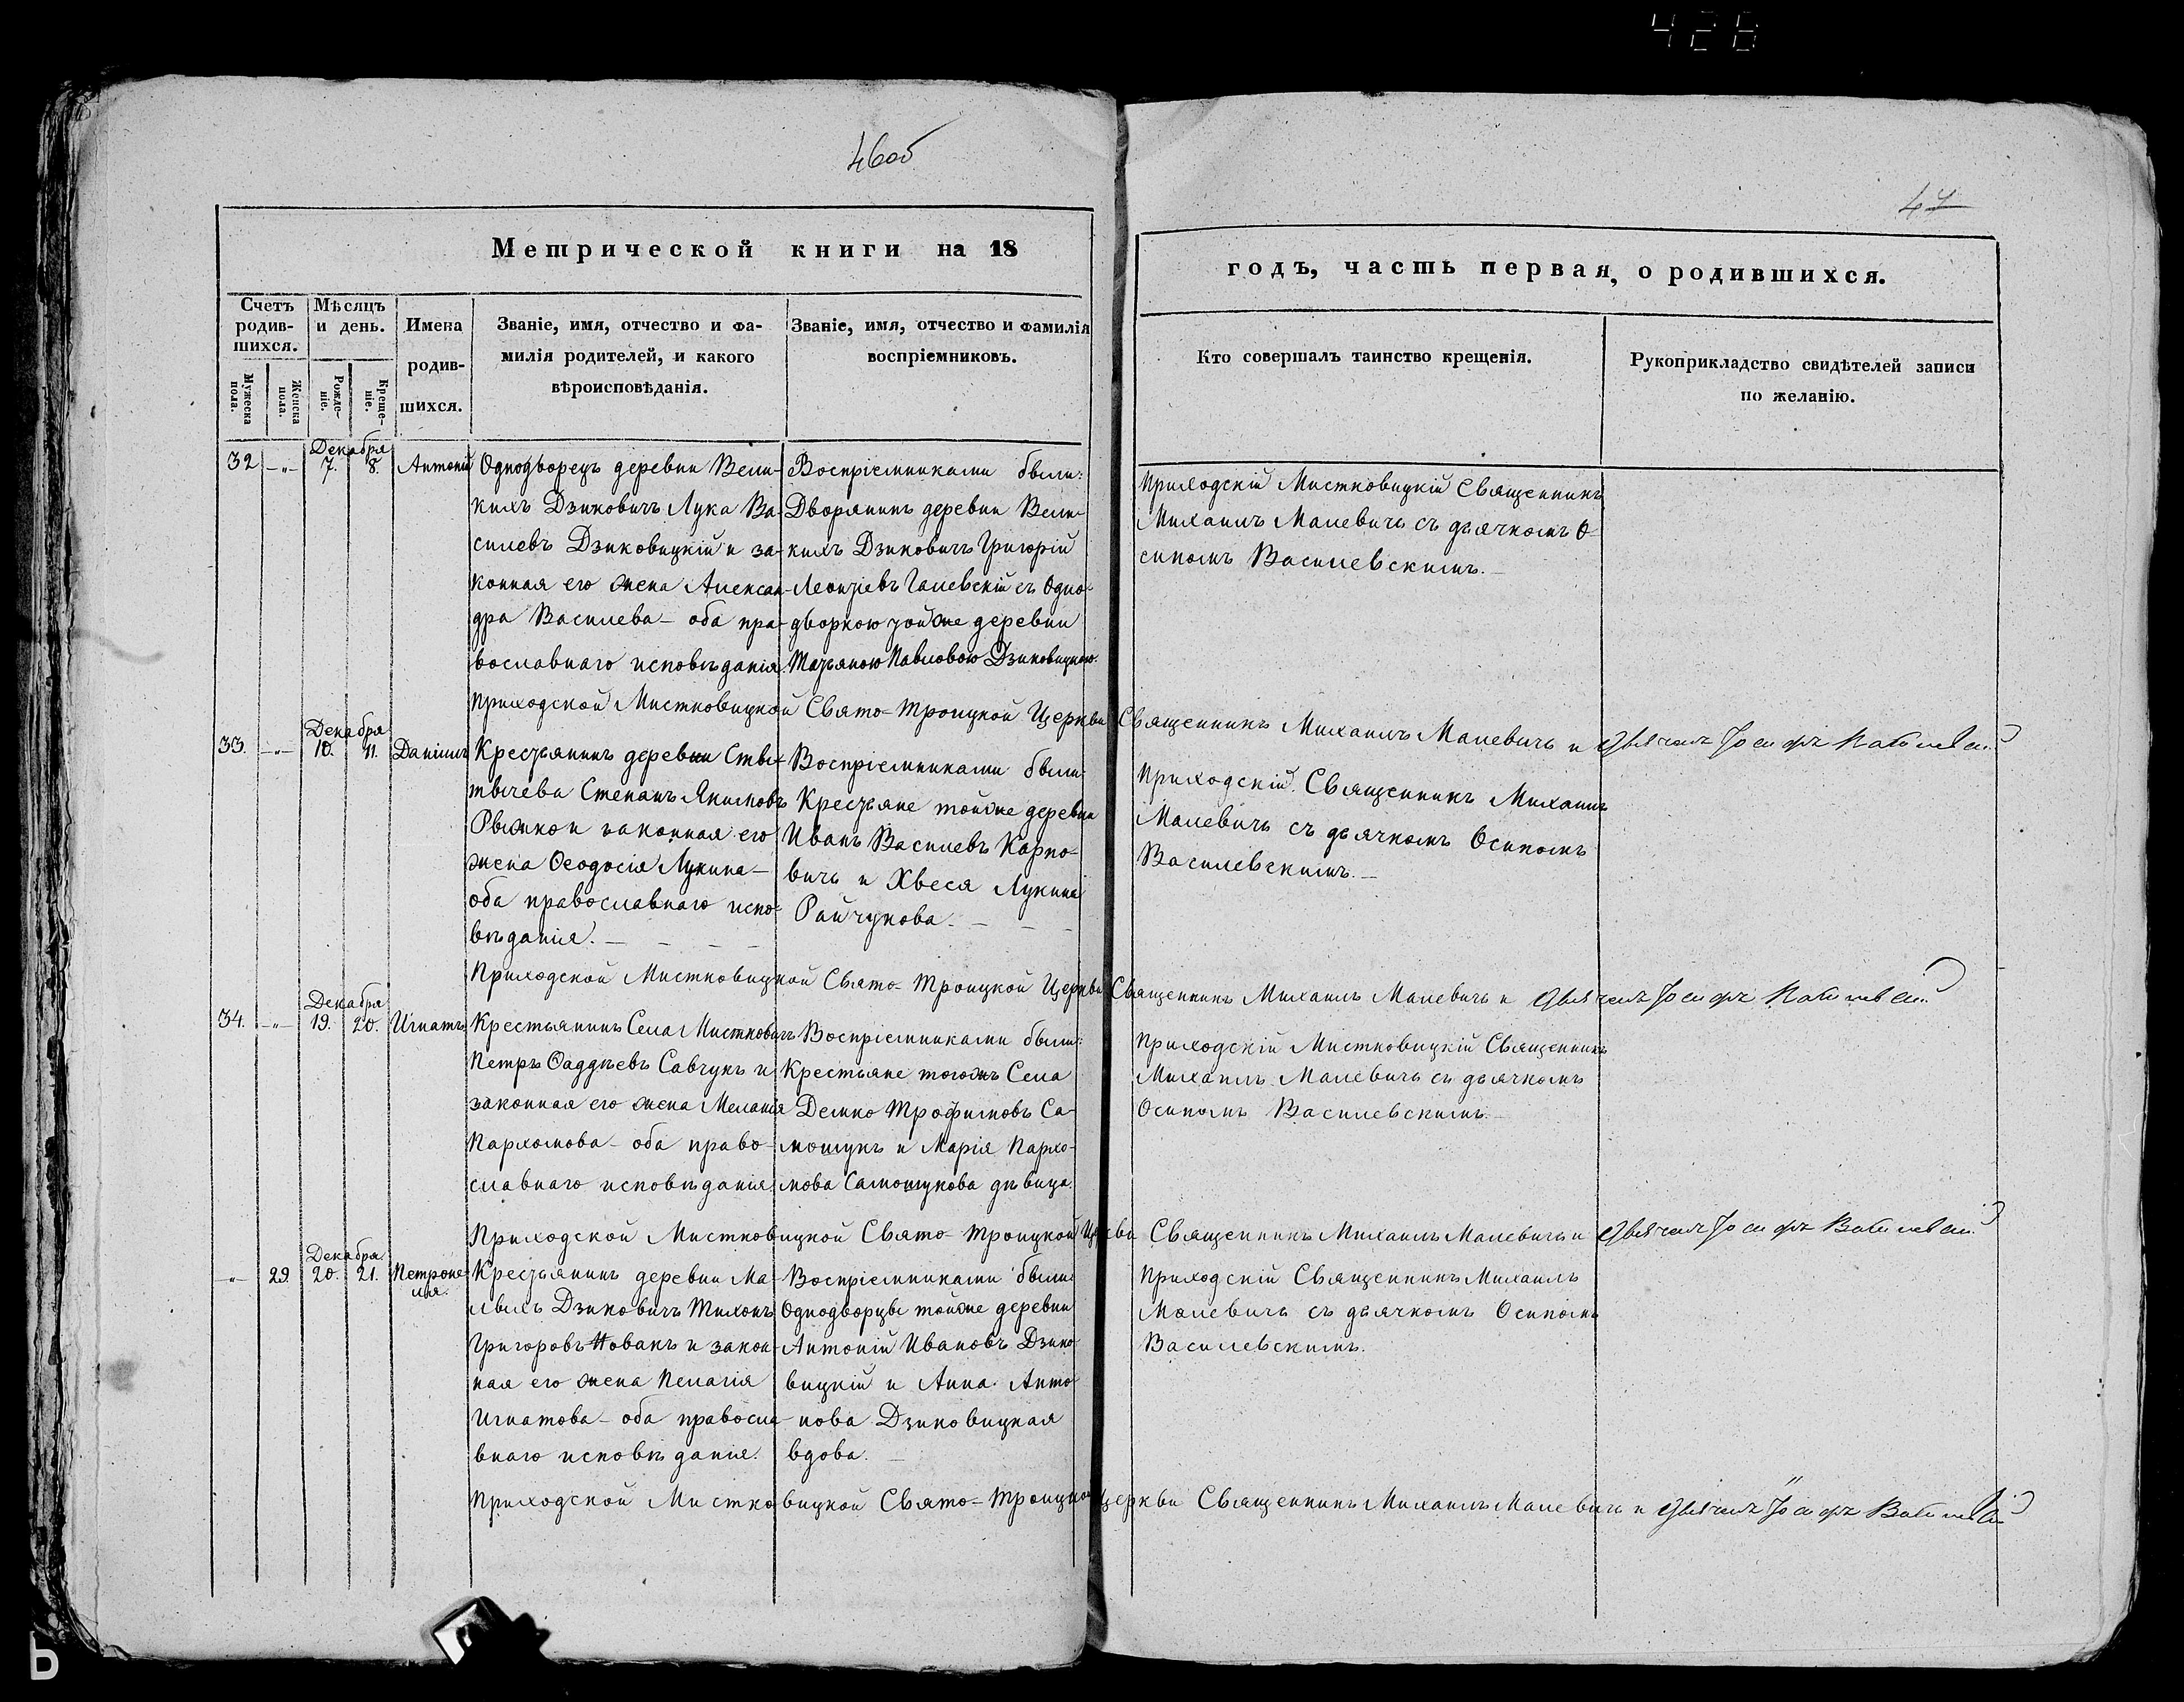 428
46об
47
Метрической книги на 18
годъ, часть первая, о родившихся.
Счетъ родив-шихся.
Мѣсяцъ и день.
Имена родив-шихся.
Званіе, имя, отчество и фа-
милія родителей, и какого
вѣроисповѣданія.
Званіе, имя, отчество и фамилія
воспріемниковъ.
Кто совершалъ таинство крещенія.
Рукоприкладство свидѣтелей записи
по желанію.
Мужеска пола.
Женска пола.
Рожде-ніе.
Креще-ніе.
Декабря
32 -„- 7. 8. Антоній
Однодворецъ деревни Вели-
кихъ Дзиковичъ Лука Ва-
силевъ Дзиковицкій и за-
конная его жена Алексан-
дра Василева - оба пра-
вославнаго исповѣданія.
Воспріемниками были:
Дворянинъ деревни Вели-
кихъ Дзиковичъ Григорій
Леонтіевъ Галевскій съ Одно-
дворкою тойже деревни
Татьяною Павловою Дзиковицкою.
Приходскій Мистковицкій Священникъ
Михаилъ Малевичъ съ дьячкомъ О-
сипомъ Василевскимъ.
Приходской Мистковицкой Свято-Троицкой Церкви Священникъ Михаилъ Малевичъ и Дьячекъ Іосифъ Василевскій
Декабря
33. -„- 10. 11. Даніилъ
Крестьянинъ деревни Сты-
тычева Степанъ Якимовъ
Рыжко и законная его
жена Ѳеодосія Лукина -
оба православнаго испо-
вѣданія.
Воспріемниками были:
Крестьяне тойже деревни
Иванъ Василевъ Карпо-
вичъ и Хвеся Лукина
Райчукова.
Приходскій Священникъ Михаилъ
Малевичъ съ дьячкомъ Осипомъ
Василевскимъ.
Приходской Мистковицкой Свято-Троицкой Церкви Священникъ Михаилъ Малевичъ и Дьячекъ Іосифъ Василевскій
Декабря
34. -„- 19. 20. Игнатъ
Крестьянинъ Села Мистковичъ
Петръ Ѳаддѣевъ Савчукъ и
законная его жена Меланія
Пархомова - оба право-
славнаго исповѣданія.
Воспріемниками были:
Крестьяне тогожъ Села
Демко Трофимовъ Са-
мошукъ и Марія Пархо-
мова Самошукова дѣвица.
Приходскій Мистковицкій Священникъ
Михаилъ Малевичъ съ дьячкомъ
Осипомъ Василевскимъ.
Приходской Мистковицкой Свято-Троицкой Церкви Священникъ Михаилъ Малевичъ и Дьячекъ Іосифъ Василевскій
Декабря
-„- 29. 20. 21. Петроне-
лія.
Крестьянинъ деревни Ма-
лыхъ Дзиковичъ Тихонъ
Григоровъ Новакъ и закон-
ная его жена Пелагія
Игнатова - оба правосла-
внаго исповѣданія.
Воспріемниками были:
Однодворцы тойже деревни
Антоній Ивановъ Дзико-
вицкій и Анна Анто-
нова Дзиковицкая
вдова.
Приходскій Священникъ Михаилъ
Малевичъ съ дьячкомъ Осипомъ
Василевскимъ.
Приходской Мистковицкой Свято-Троицкой Церкви Священникъ Михаилъ Малевичъ и Дьячекъ Іосифъ Василевскій